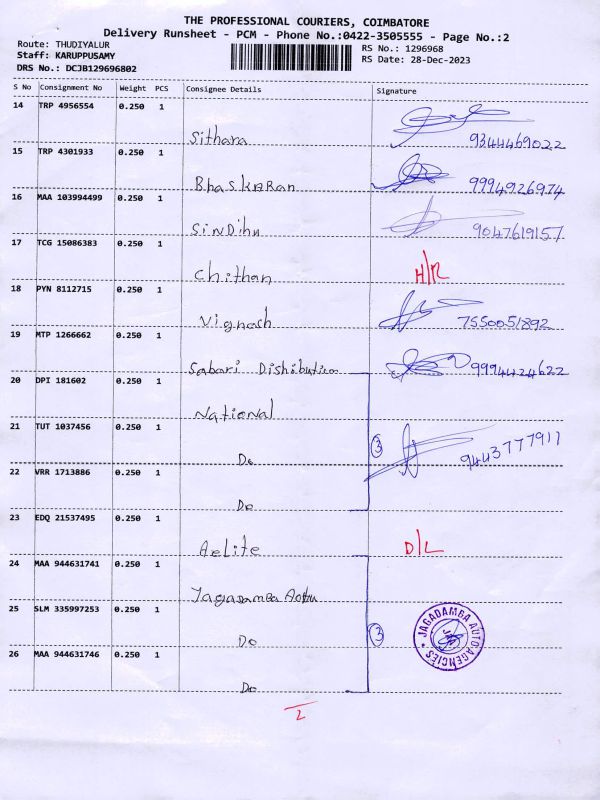 THE PROFESSIONAL COURIERS, COIMBATORE
Delivery Runsheet - PCM - Phone No.:0422-3505555 - Page No.:2
Route: THUDIYALUR
RS No.: 1296968
Staff: KARUPPUSAMY
RS Date: 28-Dec-2023
DRS No.: DCJB129696802
S No Consignment No Weight PCS Consignee Details Signature
14 TRP 4956554 0.250 1
Sithara 9344469022
15 TRP 4301933 0.250 1
BhaskaRan 9994926974
16 MAA 103994499 0.250 1
SinDihu 9047619157
17 TCG 15086383 0.250 1
Chithan H/R
18 PYN 8112715 0.250 1
Vignash 7550051892
19 MTP 1266662 0.250 1
Sabari Distribution 9994424622
20 DPI 181602 0.250 1
National
21 TUT 1037456 0.250 1
Do 3 9443777911
22 VRR 1713886 0.250 1
Do
23 EDQ 21537495 0.250 1
Aelite D/L
24 MAA 944631741 0.250 1
Jagadamba
25 SLM 335997253 0.250 1
Do 3 JAGADAMBA AUTO AGENCIES
26 MAA 944631746 0.250 1
Do
2